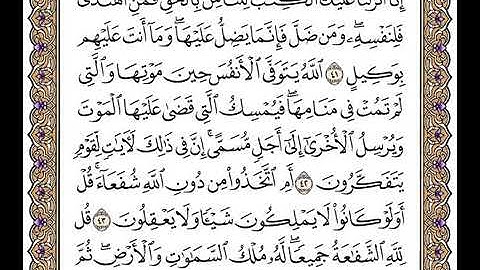 إِنَّا أَنزَلْنَا عَلَيْكَ ٱلْكِتَٰبَ لِلنَّاسِ بِٱلْحَقِّ فَمَنِ ٱهْتَدَىٰ
فَلِنَفْسِهِۦ وَمَن ضَلَّ فَإِنَّمَا يَضِلُّ عَلَيْهَا وَمَآ أَنتَ عَلَيْهِم
بِوَكِيلٍ ٤١ ٱللَّهُ يَتَوَفَّى ٱلْأَنفُسَ حِينَ مَوْتِهَا وَٱلَّتِى
لَمْ تَمُتْ فِى مَنَامِهَا فَيُمْسِكُ ٱلَّتِى قَضَىٰ عَلَيْهَا ٱلْمَوْتَ
وَيُرْسِلُ ٱلْأُخْرَىٰٓ إِلَىٰٓ أَجَلٍ مُّسَمًّى إِنَّ فِى ذَٰلِكَ لَءَايَٰتٍ لِّقَوْمٍ
يَتَفَكَّرُونَ ٤٢ أَمِ ٱتَّخَذُوا۟ مِن دُونِ ٱللَّهِ شُفَعَآءَ قُلْ
أَوَلَوْ كَانُوا۟ لَا يَمْلِكُونَ شَيْـًٔا وَلَا يَعْقِلُونَ ٤٣ قُل
لِّلَّهِ ٱلشَّفَٰعَةُ جَمِيعًا لَّهُۥ مُلْكُ ٱلسَّمَٰوَٰتِ وَٱلْأَرْضِ ثُمَّ